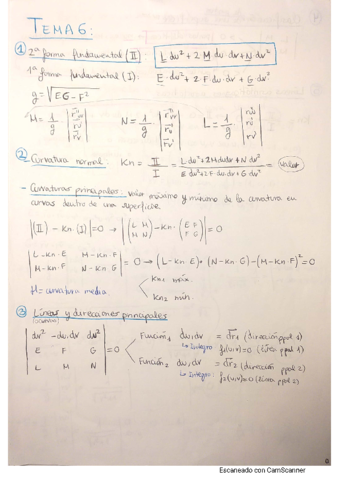 TEMA 6:
① 2ª forma fundamental (II) L du² + 2 M du dv + N dv²
1ª forma fundamental (I): E · du² + 2 F du · dv + G dv²
g = √(EG - F²)
M = 1/g · | r̄'uv r̄'u r̄'v | N = 1/g · | r̄'u r̄'v | L = 1/g · | r̄'u r̄'v |
② Curvatura normal: Kn = II/I = (L du² + 2M du dv + N dv²)/(E du² + 2F du dv + G dv²) =
- Curvaturas principales: valor máximo y mínimo de la curvatura en
curvas dentro de una superficie
|(II) - Kn · (I)| = 0 → |(L M / M N) - Kn · (E F / F G)| = 0
| L - Kn · E M - Kn · F |
| M - Kn · F N - Kn · G | = 0 → (L - Kn · E) · (N - Kn · G) - (M - Kn · F)² = 0
H = curvatura media
Kn1 máx.
Kn2 mín.
③ Líneas y direcciones principales
| dv² -du·dv du² |
| E F G | = 0
| L M N |
Función 1 du, dv = (dirección ppal 1)
↳ Integro f1(u,v) = 0 (línea ppal 1)
Función 2 du, dv = (dirección ppal 2)
↳ Integro: f2(u,v) = 0 (línea ppal 2)
Escaneado con CamScanner